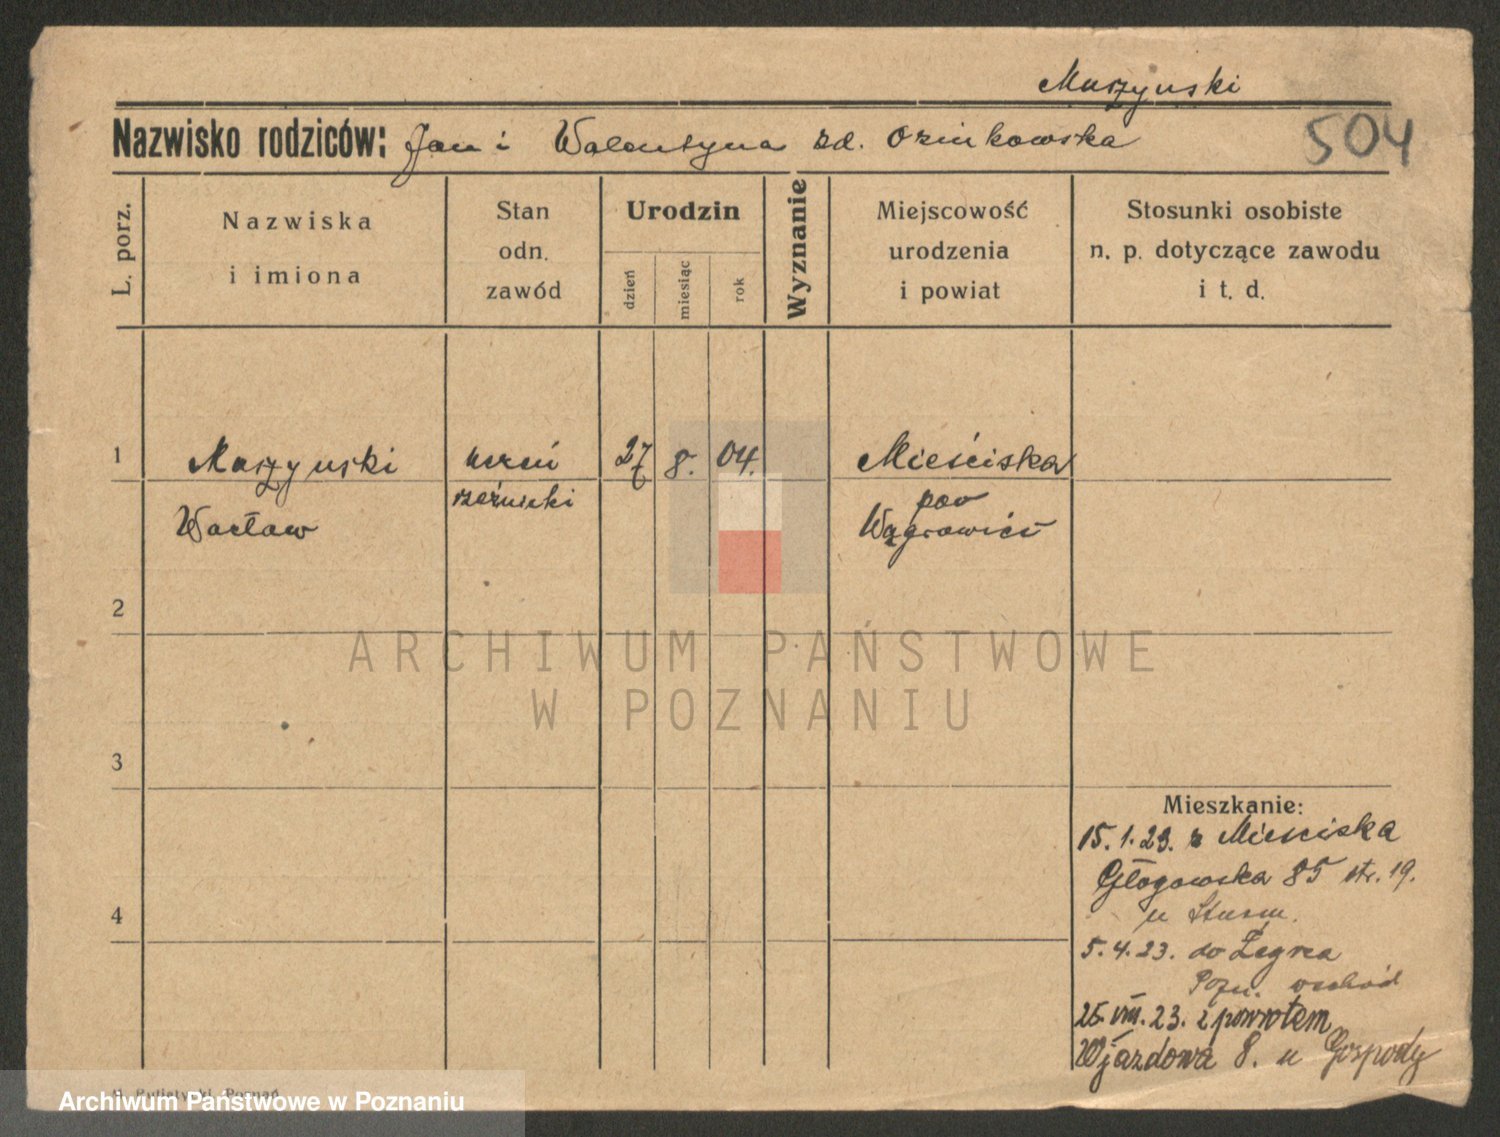 Muszynski
Nazwisko rodziców: Jan i Walentyna zd. Ozinkowska
504
L. porz.
Nazwiska
i imiona
Stan
odn.
zawód
Urodzin
dzień
miesiąc
rok
Wyznanie
Miejscowość
urodzenia
i powiat
Stosunki osobiste
n. p. dotyczące zawodu
i t. d.
1
Muszynski
Wacław
uczeń
rzeźnicki
27
8.
04.
Mieściska
pow
Wągrowiec
2
3
4
Mieszkanie:
15. 1. 23. z Mieściska
Głogowska 85 str. 19.
u
5. 4. 23. do Żegrza
Pozn. wschód
25. VIII. 23. z powrotem
Wjazdowa 8. u Gospody
Poznań
ARCHIWUM PAŃSTWOWE
W POZNANIU
Archiwum Państwowe w Poznaniu